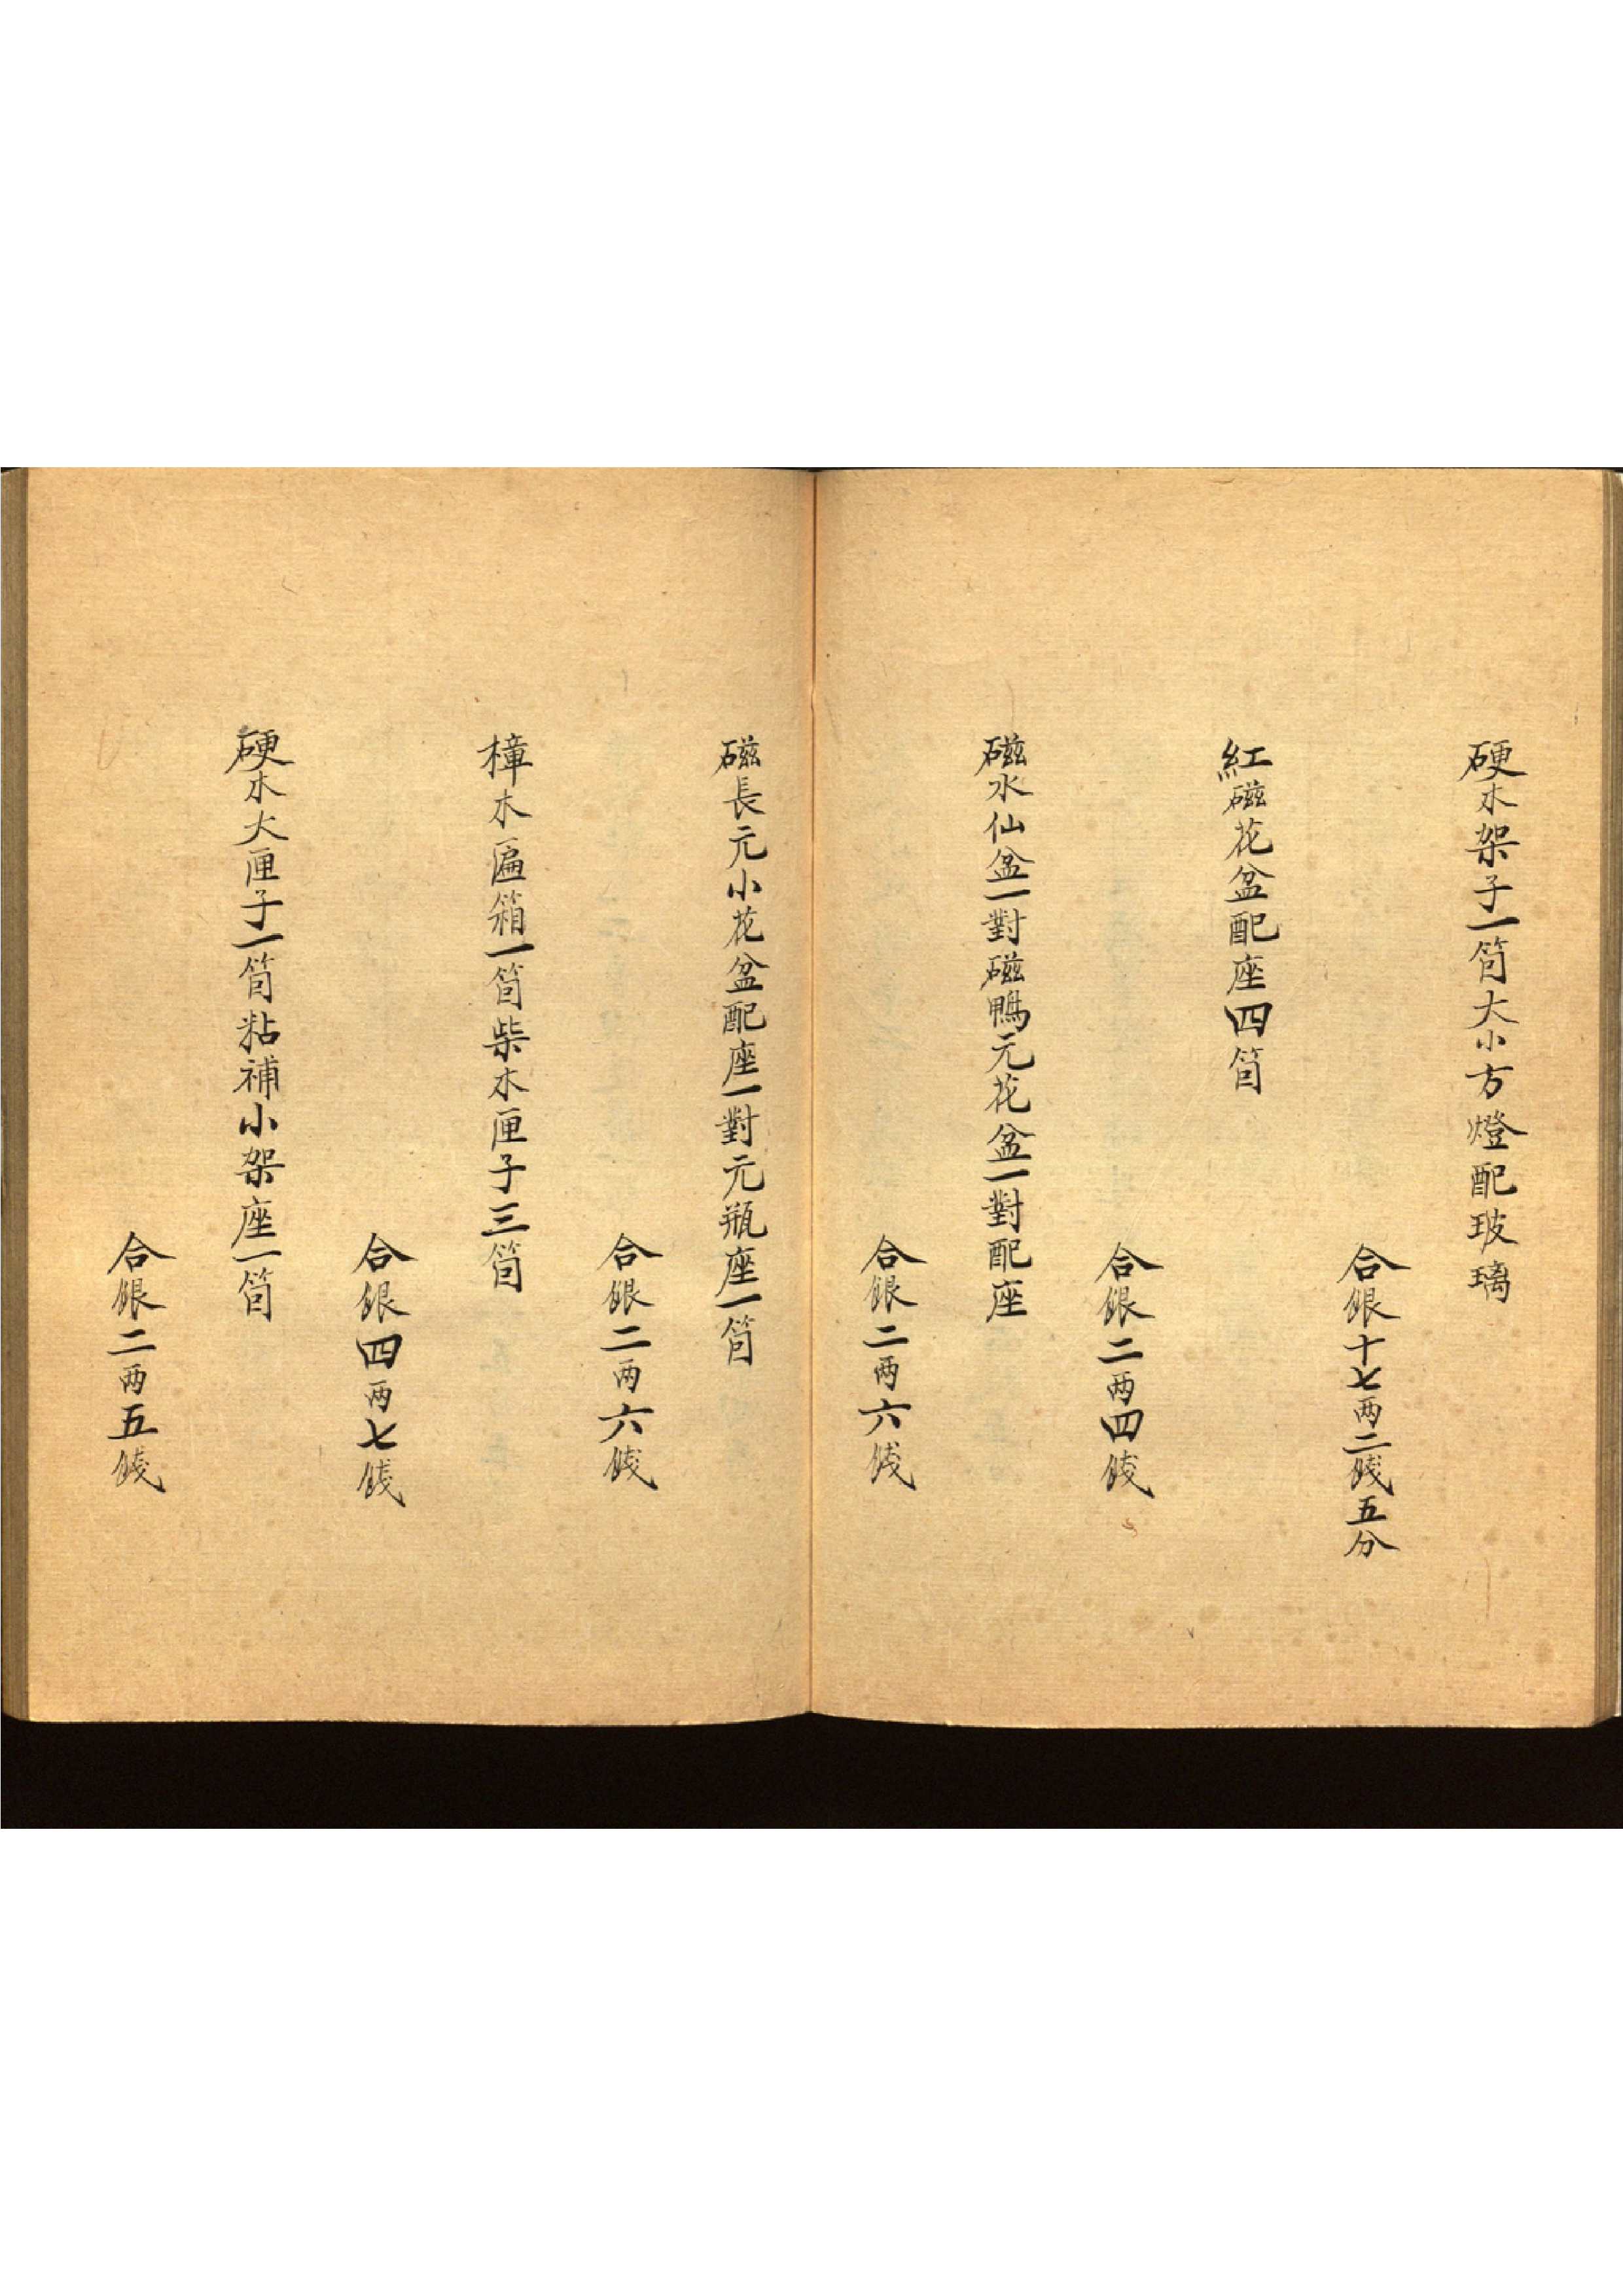 硬木架子一箇大小方燈配玻璃
合銀十七两二錢五分
紅磁花盆配座四箇
合銀二两四錢
磁水仙盆一對磁鴨元花盆一對配座
合銀二两六錢
磁長元小花盆配座一對元瓶座一箇
合銀二两六錢
樟木匾箱一箇柴木匣子三箇
合銀四两七錢
硬木大匣子一箇粘補小架座一箇
合銀二两五錢